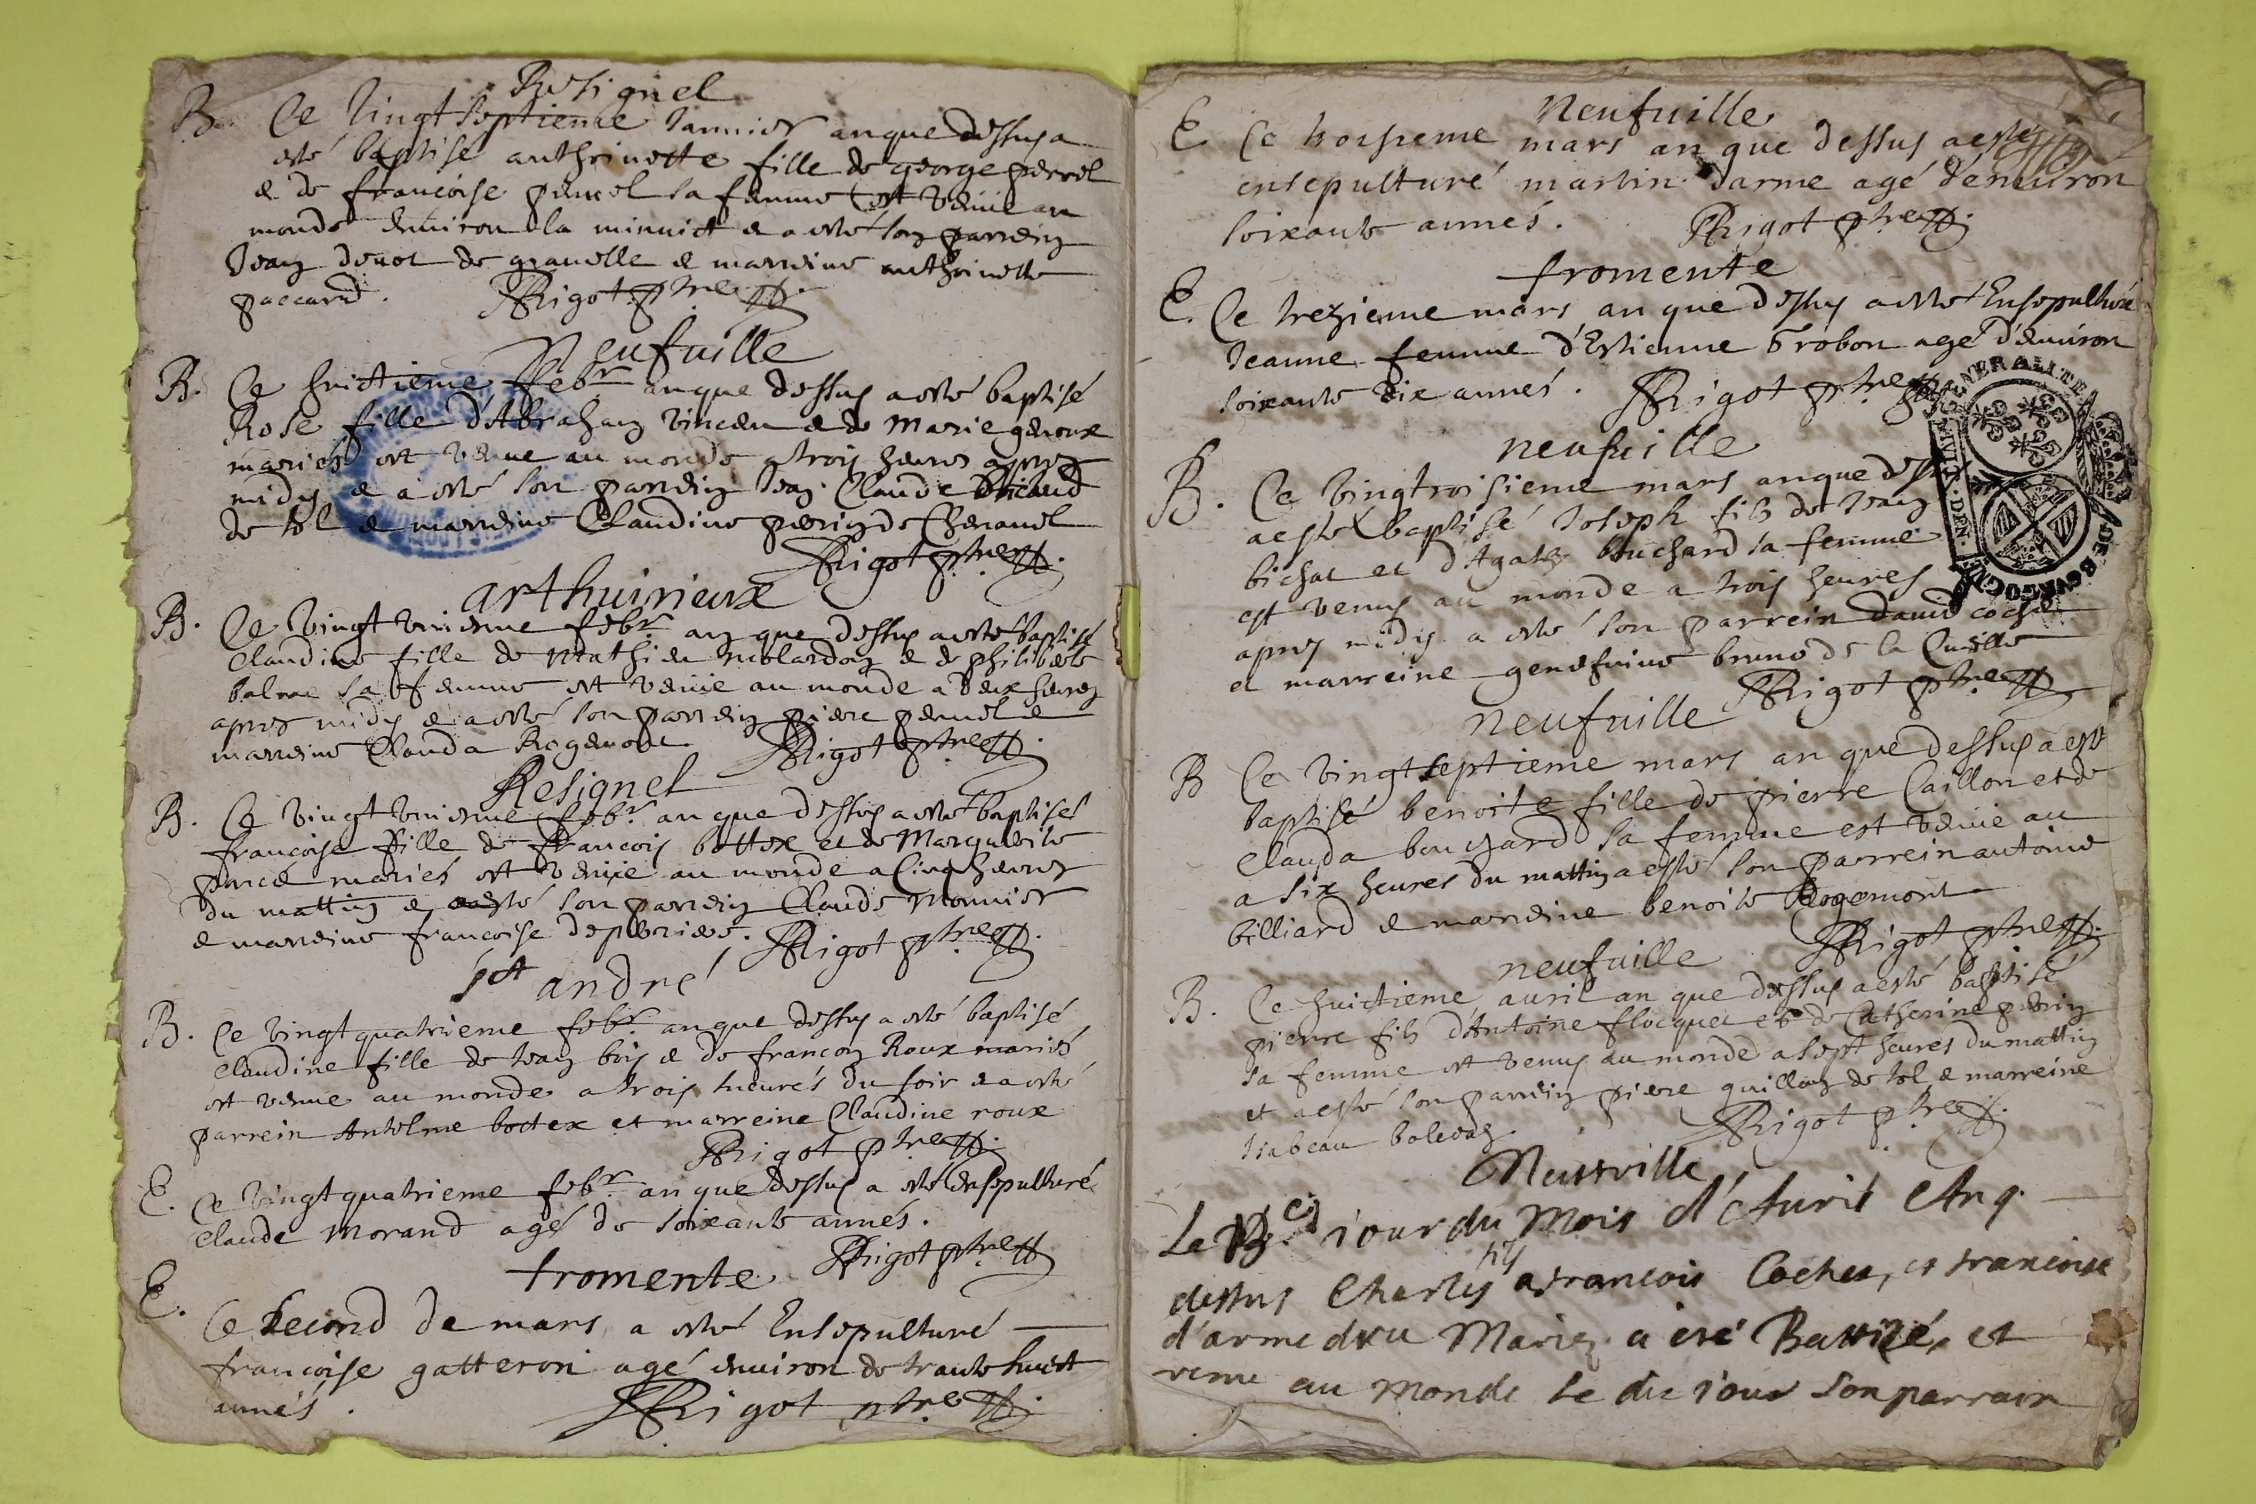 Resignel
B. Ce vingt septieme Januier an que dessus a
esté baptisé anthoinette fille de george perrel
& de francoise sa femme est venue au
monde enuiron la minuict & a esté son parrein
Jean de & marreine anthoinette
paccard. Rigot ptre
Neufuille
B. Ce huictieme Febr. an que dessus a esté baptisé
Rose fille d'Abraham & de Marie
mariés est venue au monde a trois heures apres
midy & a esté son parrein Jean Claude
de tol & marreine Claudine perin de Chenauel
Rigot ptre
arthuirieux
B. Ce vingt unieme febr. an que dessus a esté baptisé
Claudine fille de Mathieu & de philiberte
sa femme est venue au monde a deux heures
apres midy & a esté son parrein piere &
marreine Clauda Rogemont Rigot ptre
Resignel
B. Ce vingt unieme febr. an que dessus a esté baptisé
francoise fille de francois bottex et de Marguerite
mariés est venue au monde a Cinq heures
du mattin & a esté son parrein Claude Monnier
& marreine francoise Rigot ptre
sct andré
B. Ce vingt quatrieme febr. an que dessus a esté baptisé
Claudine fille de Jean bois & de francon Roux mariés
est venue au monde a trois heures du soir & a esté
parrein Antelme bottex et marreine Claudine roux
Rigot ptre
E. Ce vingt quatrieme febr. an que dessus a esté ensepulturé
Claude Morand agé de soixante annés.
Rigot ptre
fromente
E. Ce second de mars a esté Ensepulturé
francoise gatteron agé enuiron de trante huict
annés. Rigot ptre
Neufuille
E. Ce troisieme mars an que dessus a esté
ensepulturé martin darme agé d'enuiron
soixante annés. Rigot ptre
fromente
E. Ce trezieme mars an que dessus a esté Ensepulturé
Jeanne femme d'Estienne agé d'enuiron
soixante dix annés. Rigot ptre
neufuille
B. Ce vingtroisieme mars an que dessus
a esté baptisé Joseph fils de Jean
bichat et d'Agathe bouchard sa femme
est venus au monde a trois heures
apres midy a esté son parrein dauid
et marreine genefuiue de la Cueille
Rigot ptre
neufuille
B Ce vingtseptieme mars an que dessus a esté
baptisé benoite fille de pierre Caillon et de
Clauda bouchard sa femme est venue au
a six heures du mattin a esté son parrein antoine
billiard & marreine benoite Rogemont
Rigot ptre
neufuille
B. Ce huictieme auril an que dessus a esté baptisé
pierre fils d'Antoine flocquet et de Catherine perrin
sa femme est venus au monde a sept heures du mattin
et a esté son parrein piere guillon de tol & marreine
Isabeau Rigot ptre
Neufville
Le jour du Mois d'Auril An q.
dessus Charles fils a francois Cochet, et francoise
d'arme Mariez a eté Battizé, et
venu au Monde le dit jour son parrain
GENERALITE DE BOURGOGNE